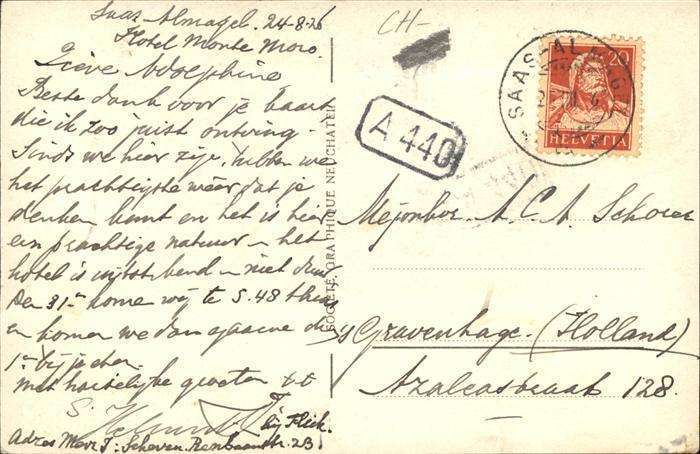 Saas Almagel. 24-8-26
Hotel Monte Moro.
Lieve Adolphine
Beste dank voor je kaart
die ik zoo juist ontving.
Sinds we hier zijn, hebben we
het prachtigste weer dat je
denken kunt en het is hier
een prachtige natuur - het
hotel is uitstekend - niet duur
Den 31sten komen wij te 5.48 thuis
en komen we dan gaarne de
1e bij je eten.
Met hartelijke groeten t.t.
bij Flick.
Adres Mevr. J. Scheven
SOCIÉTÉ GRAPHIQUE NEUCHATEL
CH-
A 440
SAAS-ALMAGEL
20
HELVETIA
Mejonkvr. A. C. A. Schorer
's Gravenhage. (Holland)
Azaleastraat 128.